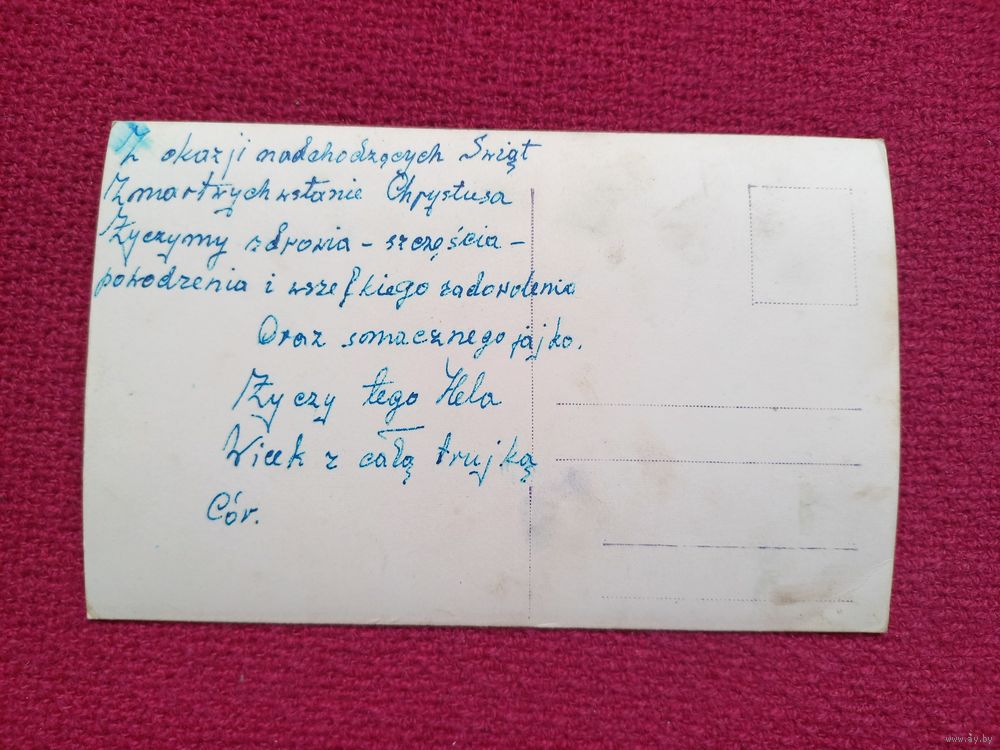 Z okazji nadchodzących Świąt
Zmartwychwstanie Chrystusa
Życzymy zdrowia - szczęścia -
powodzenia i wszelkiego zadowolenia
Oraz smacznego jajka.
Życzy tego Hela
Wicek z całą trujką
Cór.
www.ay.by